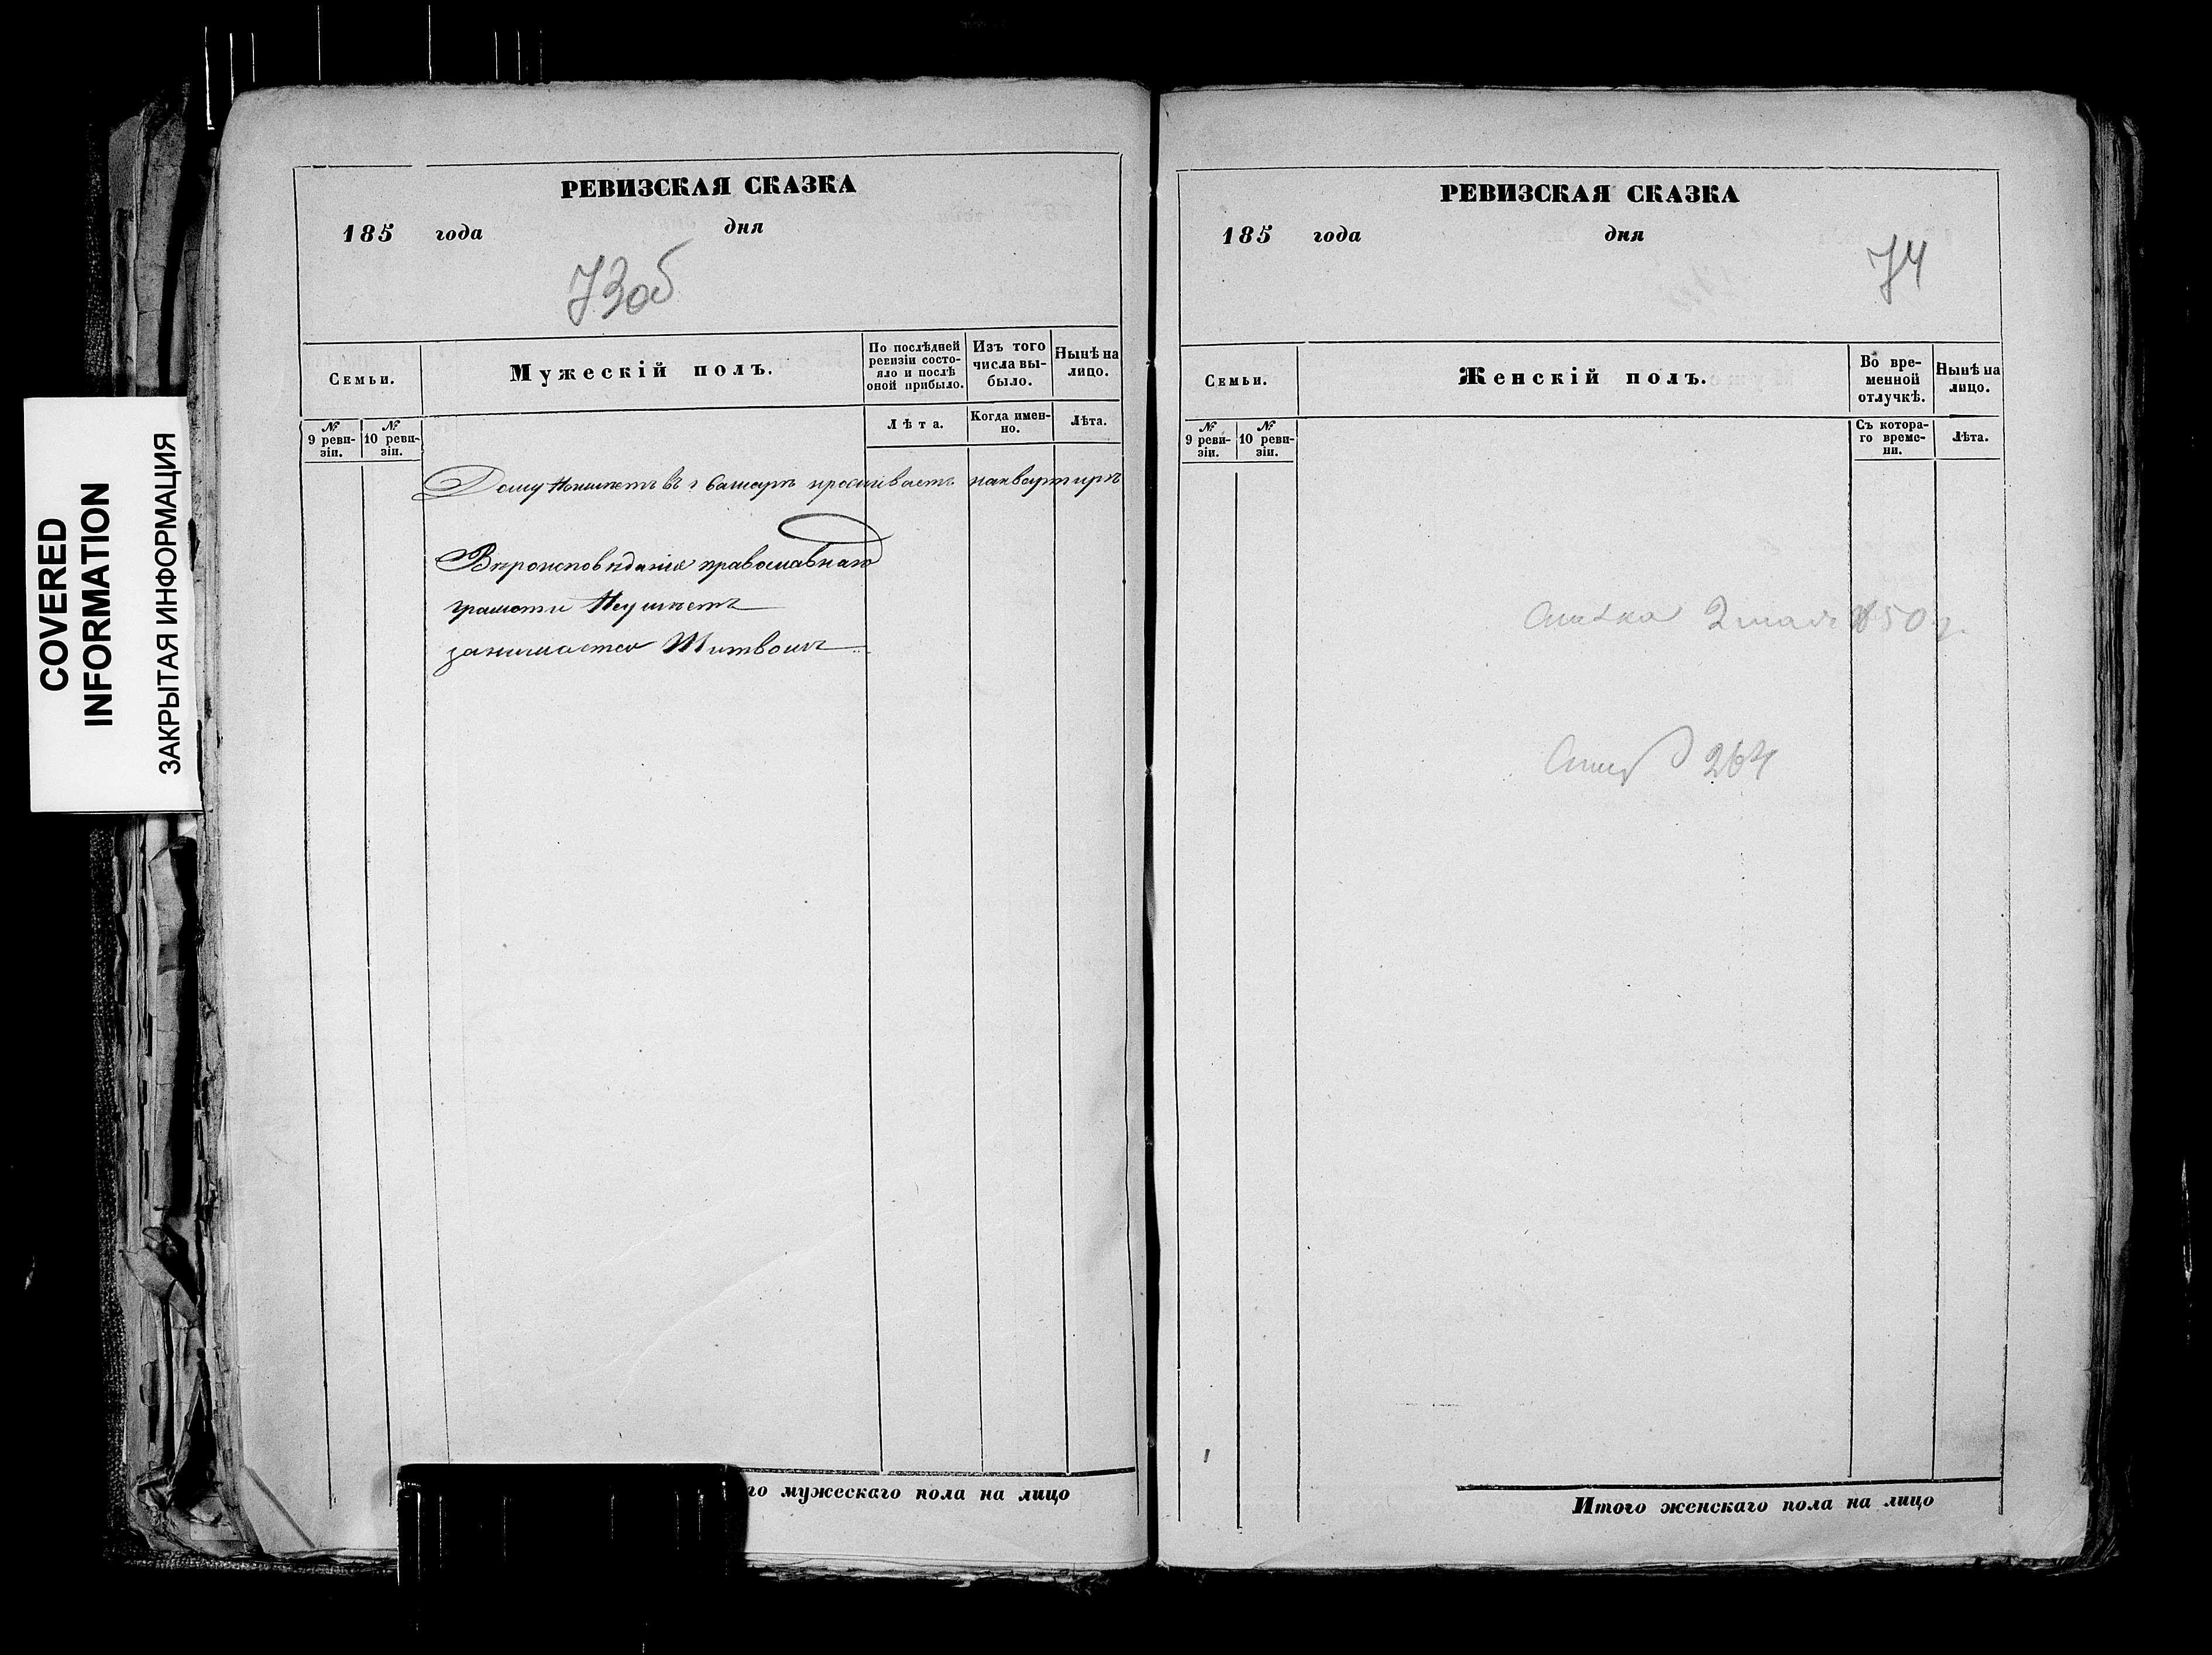 COVERED
INFORMATION
ЗАКРЫТАЯ ИНФОРМАЦИЯ
РЕВИЗСКАЯ СКАЗКА
185 года дня
73об
Семьи.
Мужескій полъ.
По послѣдней ревизіи состояло и послѣ оной прибыло.
Изъ того числа выбыло.
Нынѣ на лицо.
№ 9 ревизіи.
№ 10 ревизіи.
Лѣта.
Когда именно.
Лѣта.
Дому Неимеетъ въ г Самарѣ проживаетъ наквартирѣ
Вѣроисповѣданія православнаго
грамоти Неумѣетъ
занимается Шитвомъ
го мужескаго пола на лицо
РЕВИЗСКАЯ СКАЗКА
185 года дня
74
Семьи.
Женскій полъ.
Во временной отлучкѣ.
Нынѣ на лицо.
№ 9 ревизіи.
№ 10 ревизіи.
Съ котораго времени.
Лѣта.
2 мая 1850 г.
264
Итого женскаго пола на лицо